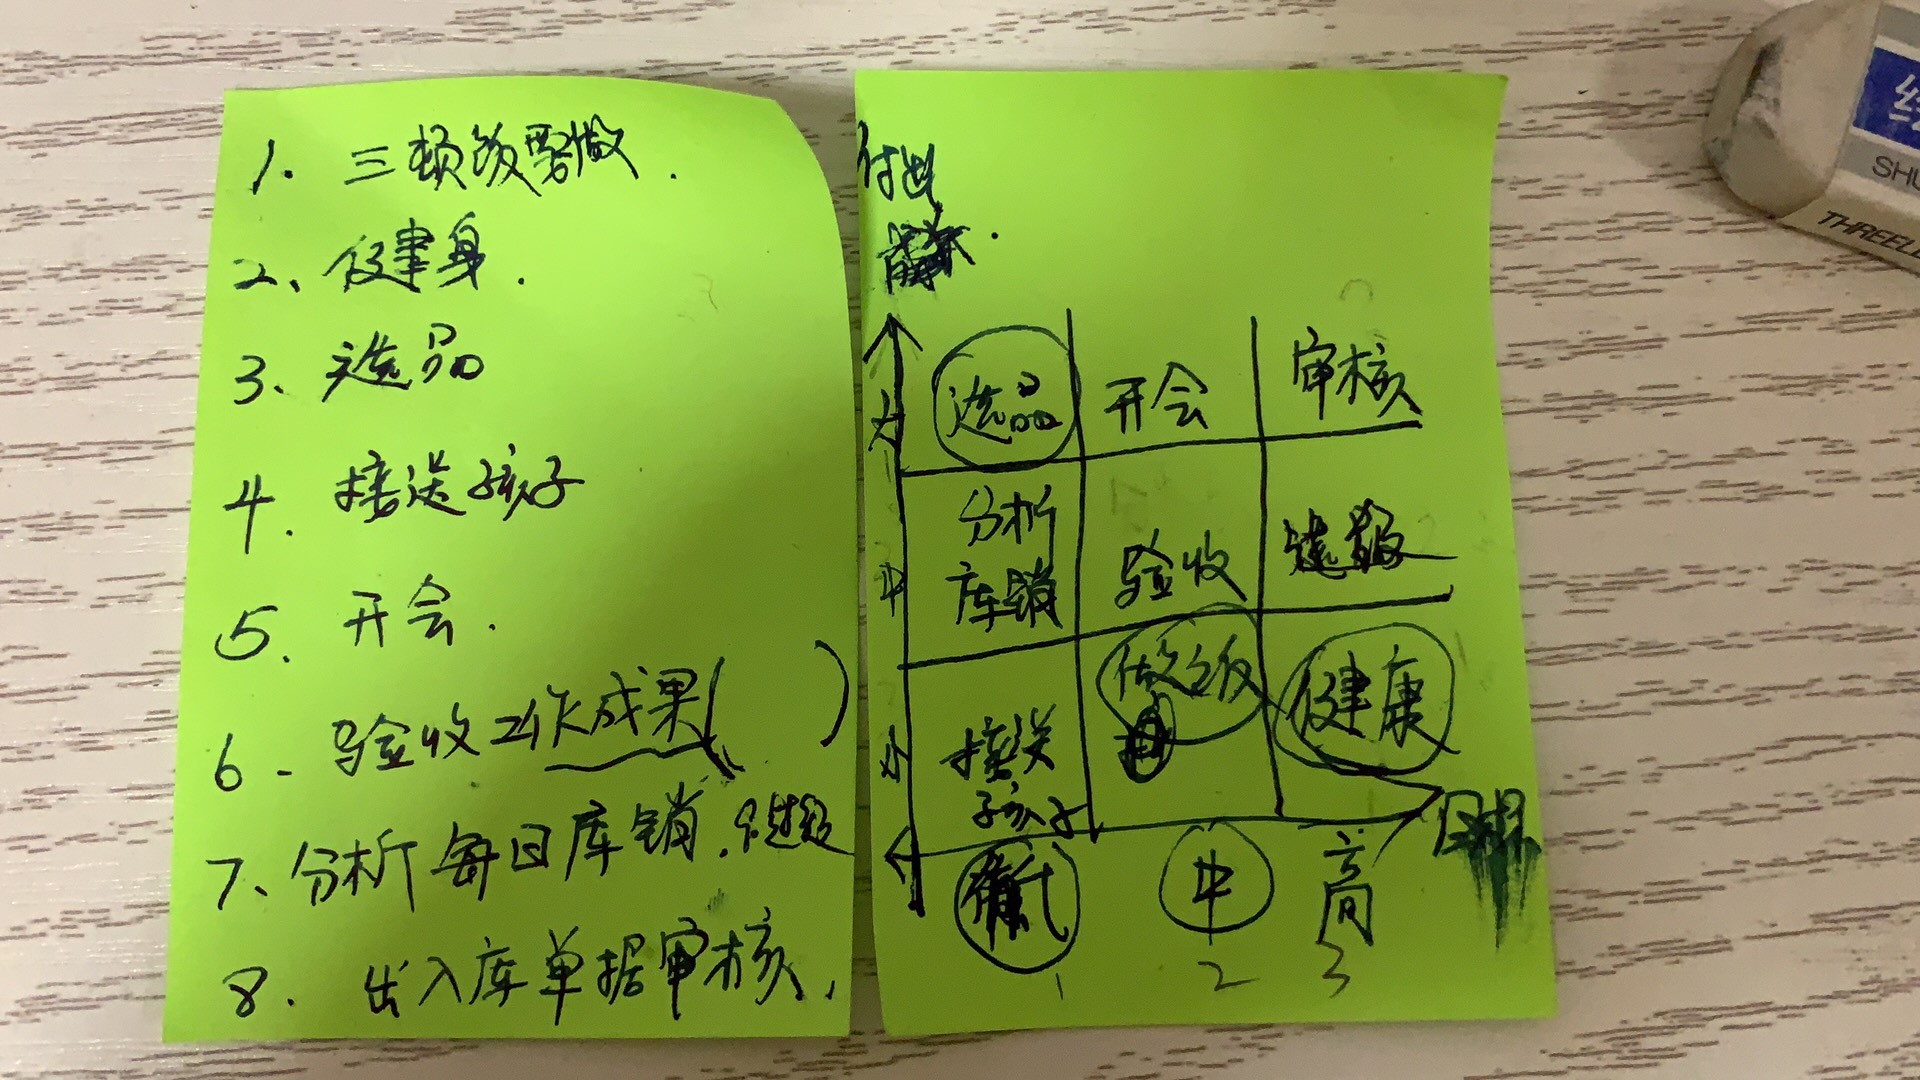 1. 三顿饭要做.
2、健身.
3、选品
4. 接送孩子
5. 开会.
6. 验收工作成果( )
7、分析每日库销.
8. 出入库单据审核.
付出
大
选品
开会
审核
中
分析
库销
验收
小
接送
孩子
做饭
健康
低
中
高
目标
1
2
3
SHU
THREEL